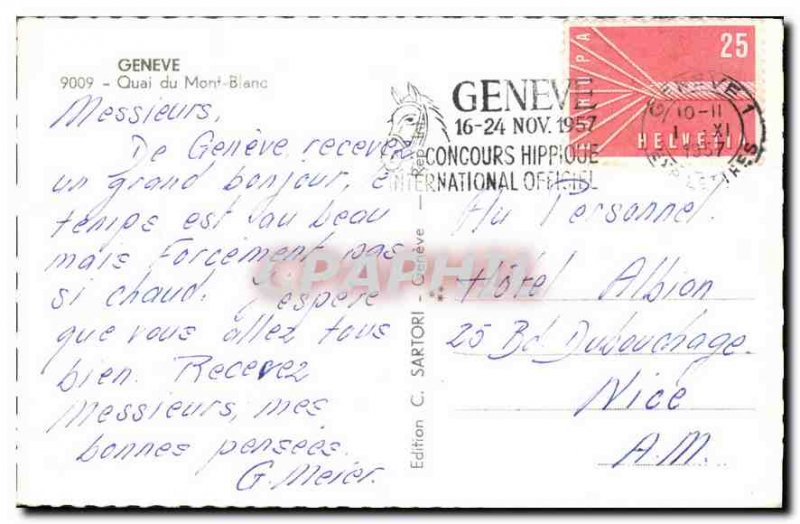 GENEVE
9009 - Quai du Mont-Blanc
Messieurs,
De Genève, recevez
un grand bonjour,
temps est au beau
mais Forcément pas
si chaud. J'espère
que vous allez tous
bien. Recevez
Messieurs, mes
bonnes pensées.
G. Meier.
Edition C. SARTORI - Genève -
GENEVE
16-24 NOV. 1957
CONCOURS HIPPIQUE
INTERNATIONAL OFFICIEL
25
HELVETIA
GENEVE 1
10-11
1 XI
1957
Au Personnel.
Hôtel Albion
25 Bd Dubouchage.
Nice
A.M.
CPAPHIL